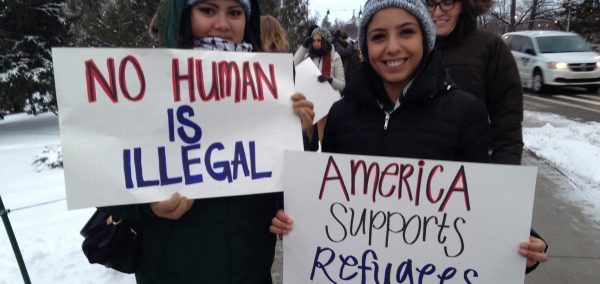 No HUMAN
IS
ILLEGAL
AMERICA
SUPPORTS
Refugees